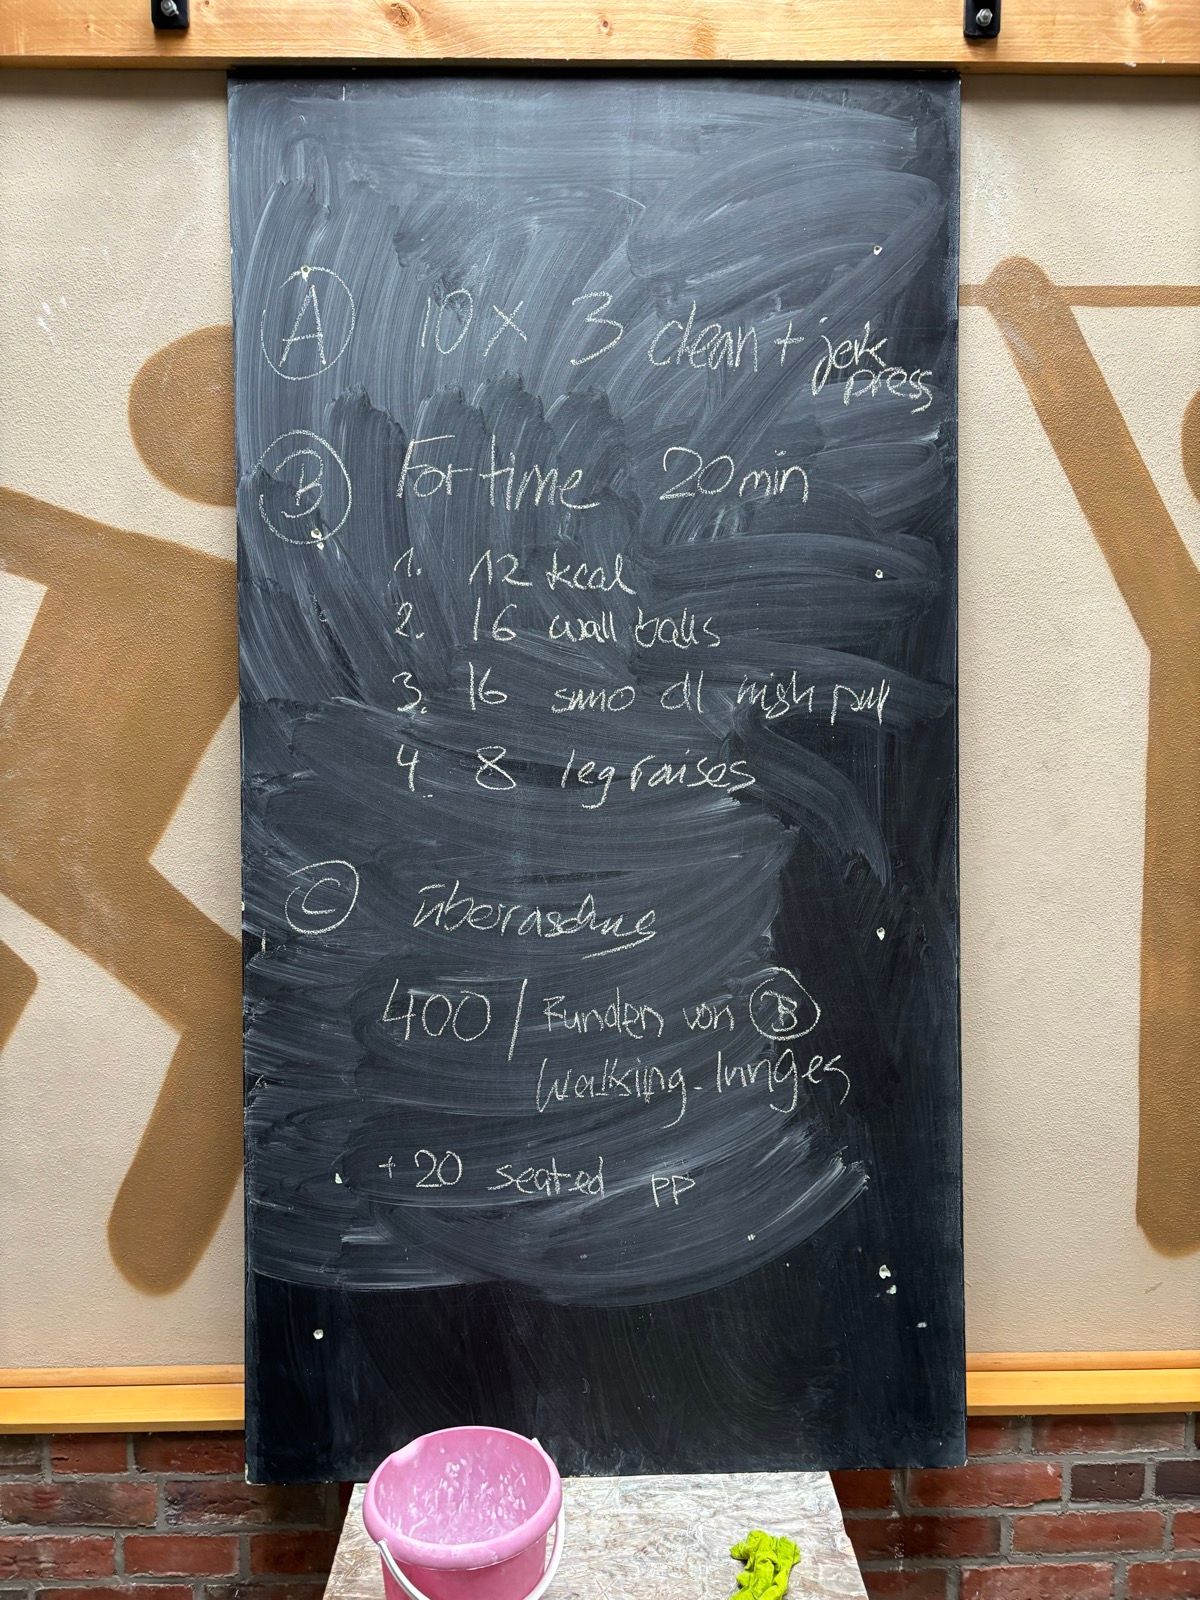 A 10x 3 clean + jerk
press
B For time 20 min
1. 12 kcal
2. 16 wall balls
3. 16 sumo dl high pull
4. 8 leg raises
C
400 / Runden von B
walking-lunges
+ 20 seated pp